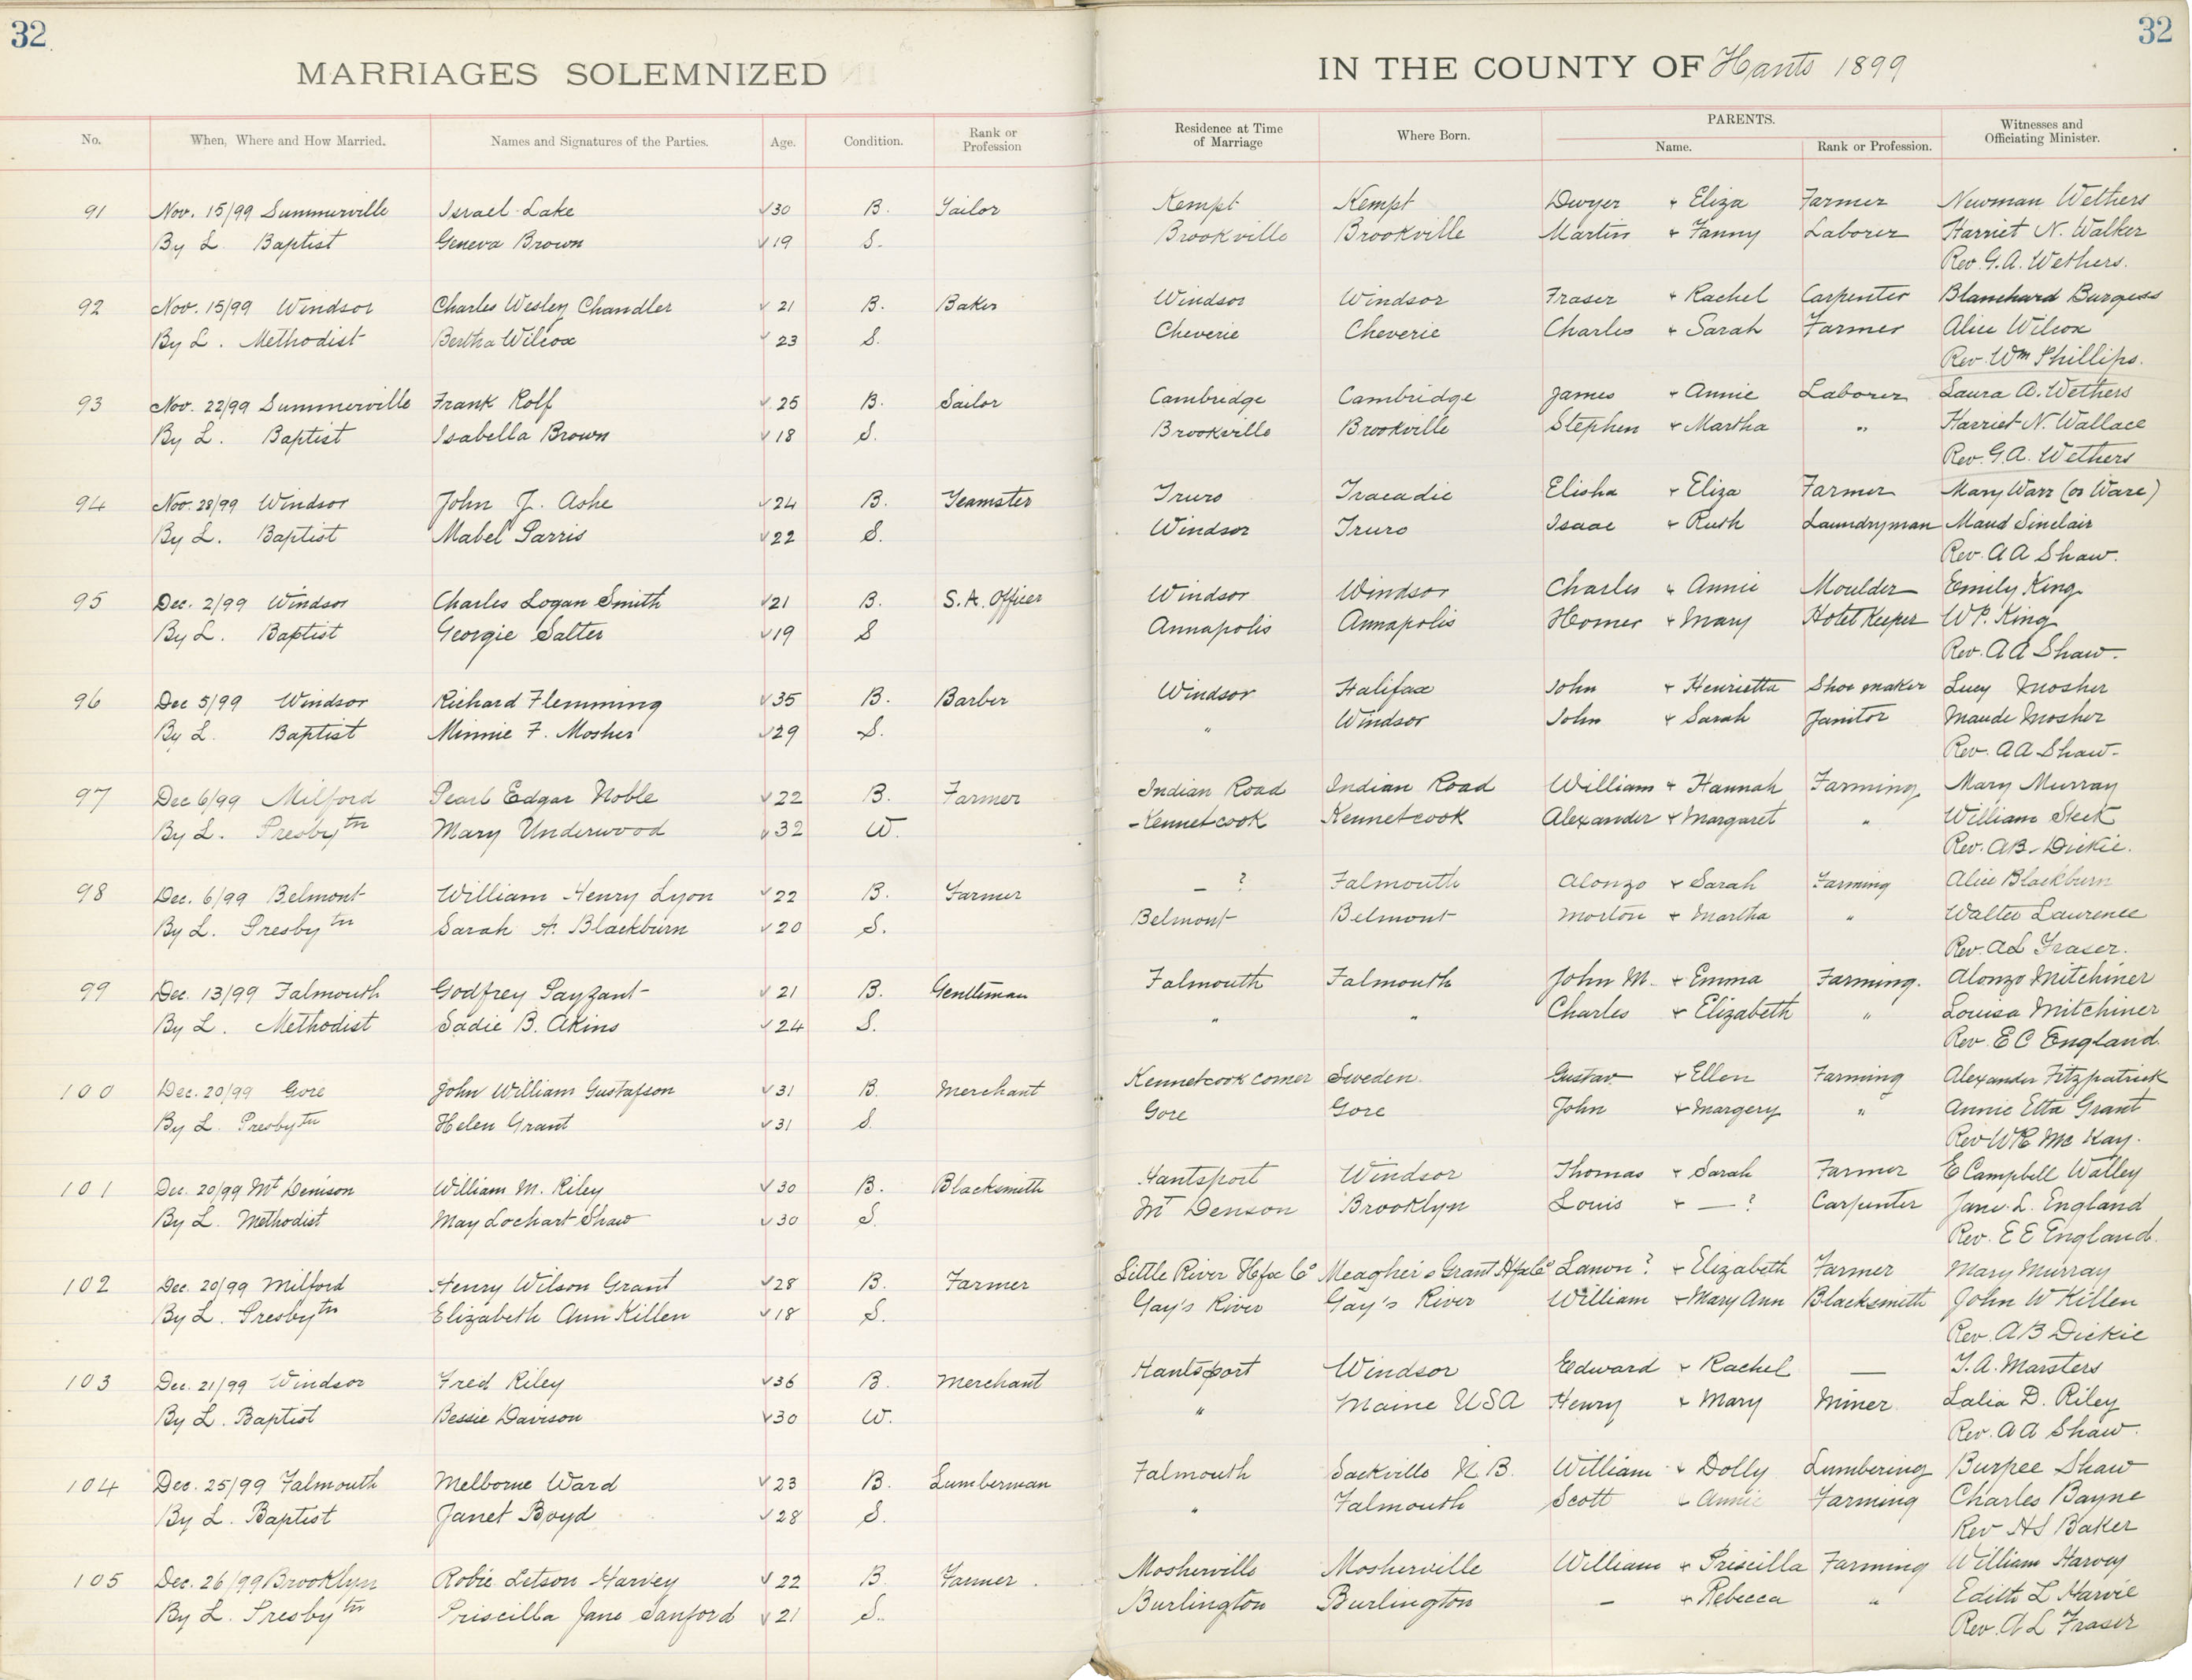 32
32
MARRIAGES SOLEMNIZED IN THE COUNTY OF Hants 1899
No. When, Where and How Married. Names and Signatures of the Parties. Age. Condition. Rank or Profession Residence at Time of Marriage Where Born. PARENTS. Name. Rank or Profession. Witnesses and Officiating Minister.
91 Nov. 15/99 Summerville Israel Lake √30 B. Sailor Kempt Kempt Dwyer + Eliza Farmer Newman Wethers
By L Baptist Geneva Brown √19 S. Brookville Brookville Martin + Fanny Laborer Harriet N. Walker
Rev. G.A. Wethers.
92 Nov. 15/99 Windsor Charles Wesley Chandler √21 B. Baker Windsor Windsor Fraser + Rachel Carpenter Blanchard Burgess
By L. Methodist Bertha Wilcox √23 S. Cheverie Cheverie Charles + Sarah Farmer Alice Wilcox
Rev. Wm Phillips.
93 Nov. 22/99 Summerville Frank Rolf √25 B. Sailor Cambridge Cambridge James + Annie Laborer Laura A. Wethers
By L. Baptist Isabella Brown √18 S. Brookville Brookville Stephen + Martha " Harriet N. Wallace
Rev. G.A. Wethers
94 Nov. 28/99 Windsor John J. Ashe √24 B. Teamster Truro Tracadie Elisha + Eliza Farmer Mary Warr (or Ware)
By L. Baptist Mabel Parris √22 S. Windsor Truro Isaac + Ruth Laundryman Maud Sinclair
Rev. A A Shaw.
95 Dec. 2/99 Windsor Charles Logan Smith √21 B. S.A. Officer Windsor Windsor Charles + Annie Moulder Emily King
By L. Baptist Georgie Salter √19 S Annapolis Annapolis Homer + Mary Hotel Keeper W.P. King
Rev. A A Shaw.
96 Dec 5/99 Windsor Richard Flemming √35 B. Barber Windsor Halifax John + Henrietta Shoe maker Lucy Mosher
By L. Baptist Minnie F. Mosher √29 S. " Windsor John + Sarah Janitor Maude Mosher
Rev. A A Shaw.
97 Dec 6/99 Milford Pearl Edgar Noble √22 B. Farmer Indian Road Indian Road William + Hannah Farming Mary Murray
By L. Presbytn Mary Underwood √32 W. Kennetcook Kennetcook Alexander + Margaret " William Steck
Rev. AB Dickie.
98 Dec. 6/99 Belmont William Henry Lyon √22 B. Farmer – ? Falmouth Alonzo + Sarah Farming Alice Blackburn
By L. Presbytn Sarah A. Blackburn √20 S. Belmont Belmont Morton + Martha " Walter Laurence
Rev. A L Fraser.
99 Dec. 13/99 Falmouth Godfrey Payzant √21 B. Gentleman Falmouth Falmouth John M. + Emma Farming. Alonzo Mitchiner
By L. Methodist Sadie B. Akins √24 S. " " Charles + Elizabeth " Louisa Mitchiner
Rev. E C England.
100 Dec. 20/99 Gore John William Gustafson √31 B. Merchant Kennetcook corner Sweden. Gustav + Ellen Farming Alexander Fitzpatrick
By L. Presbytn Helen Grant √31 S. Gore Gore John + Margery " Annie Etta Grant
Rev McKay.
101 Dec. 20/99 Mt Denison William M. Riley √30 B. Blacksmith Hantsport Windsor Thomas + Sarah Farmer E Campbell Walley
By L. Methodist May Lochart Shaw √30 S. Mt Denson Brooklyn Louis + – ? Carpenter Jane L. England
Rev. E E England.
102 Dec. 20/99 Milford Henry Wilson Grant √28 B. Farmer Little River Hfx Co Meagher's Grant Hfx Co Lamon? + Elizabeth Farmer Mary Murray
By L. Presbytn Elizabeth Ann Killen √18 S. Gay's River Gay's River William + Mary Ann Blacksmith John W Killen
Rev. A B Dickie
103 Dec. 21/99 Windsor Fred Riley √36 B. Merchant Hantsport Windsor Edward + Rachel — T. A. Marsters
By L. Baptist Bessie Davison √30 W. " Maine USA Henry + Mary Miner Lalia D. Riley
Rev. A A Shaw.
104 Dec. 25/99 Falmouth Melborne Ward √23 B. Lumberman Falmouth Sackville N.B. William + Dolly Lumbering Burpee Shaw
By L. Baptist Janet Boyd √28 S. " Falmouth Scott + Annie Farming Charles Bayne
Rev H S Baker
105 Dec. 26/99 Brooklyn Robie Letson Harvey √22 B. Farmer. Mosherville Mosherville William + Priscilla Farming William Harvey
By L. Presbytn Priscilla Jane Sanford √21 S. Burlington Burlington – + Rebecca " Edith L Harvie
Rev. A L Fraser